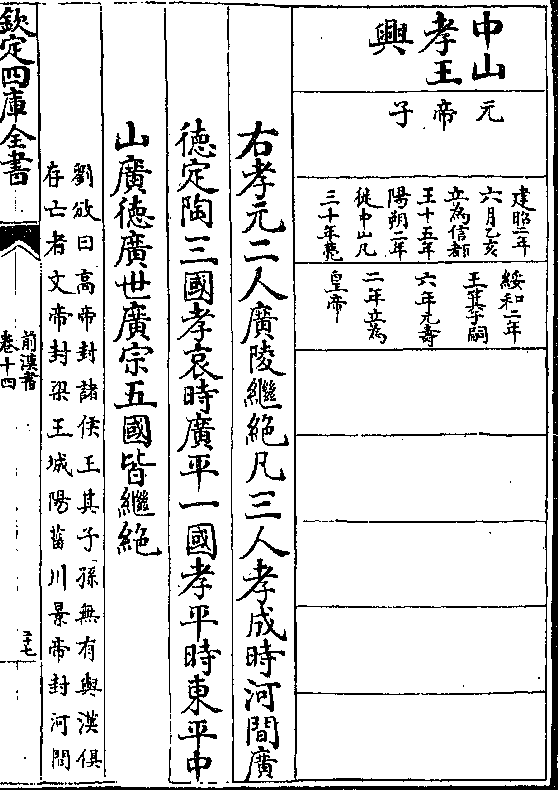 中山
孝王
興
元帝子
建昭二年
六月乙亥
立為信都
王十五年
陽朔二年
徙中山凡
三十年薨
綏和二年
王箕子嗣
六年元壽
二年立為
皇帝
右孝元二人廣陵繼絶凡三人孝成時河間廣
德定陶三國孝哀時廣平一國孝平時東平中
山廣德廣世廣宗五國皆繼絶
劉攽曰高帝封諸侯王其子孫無有與漢俱
存亡者文帝封梁王城陽菑川景帝封河間
欽定四庫全書
前漢書
卷十四